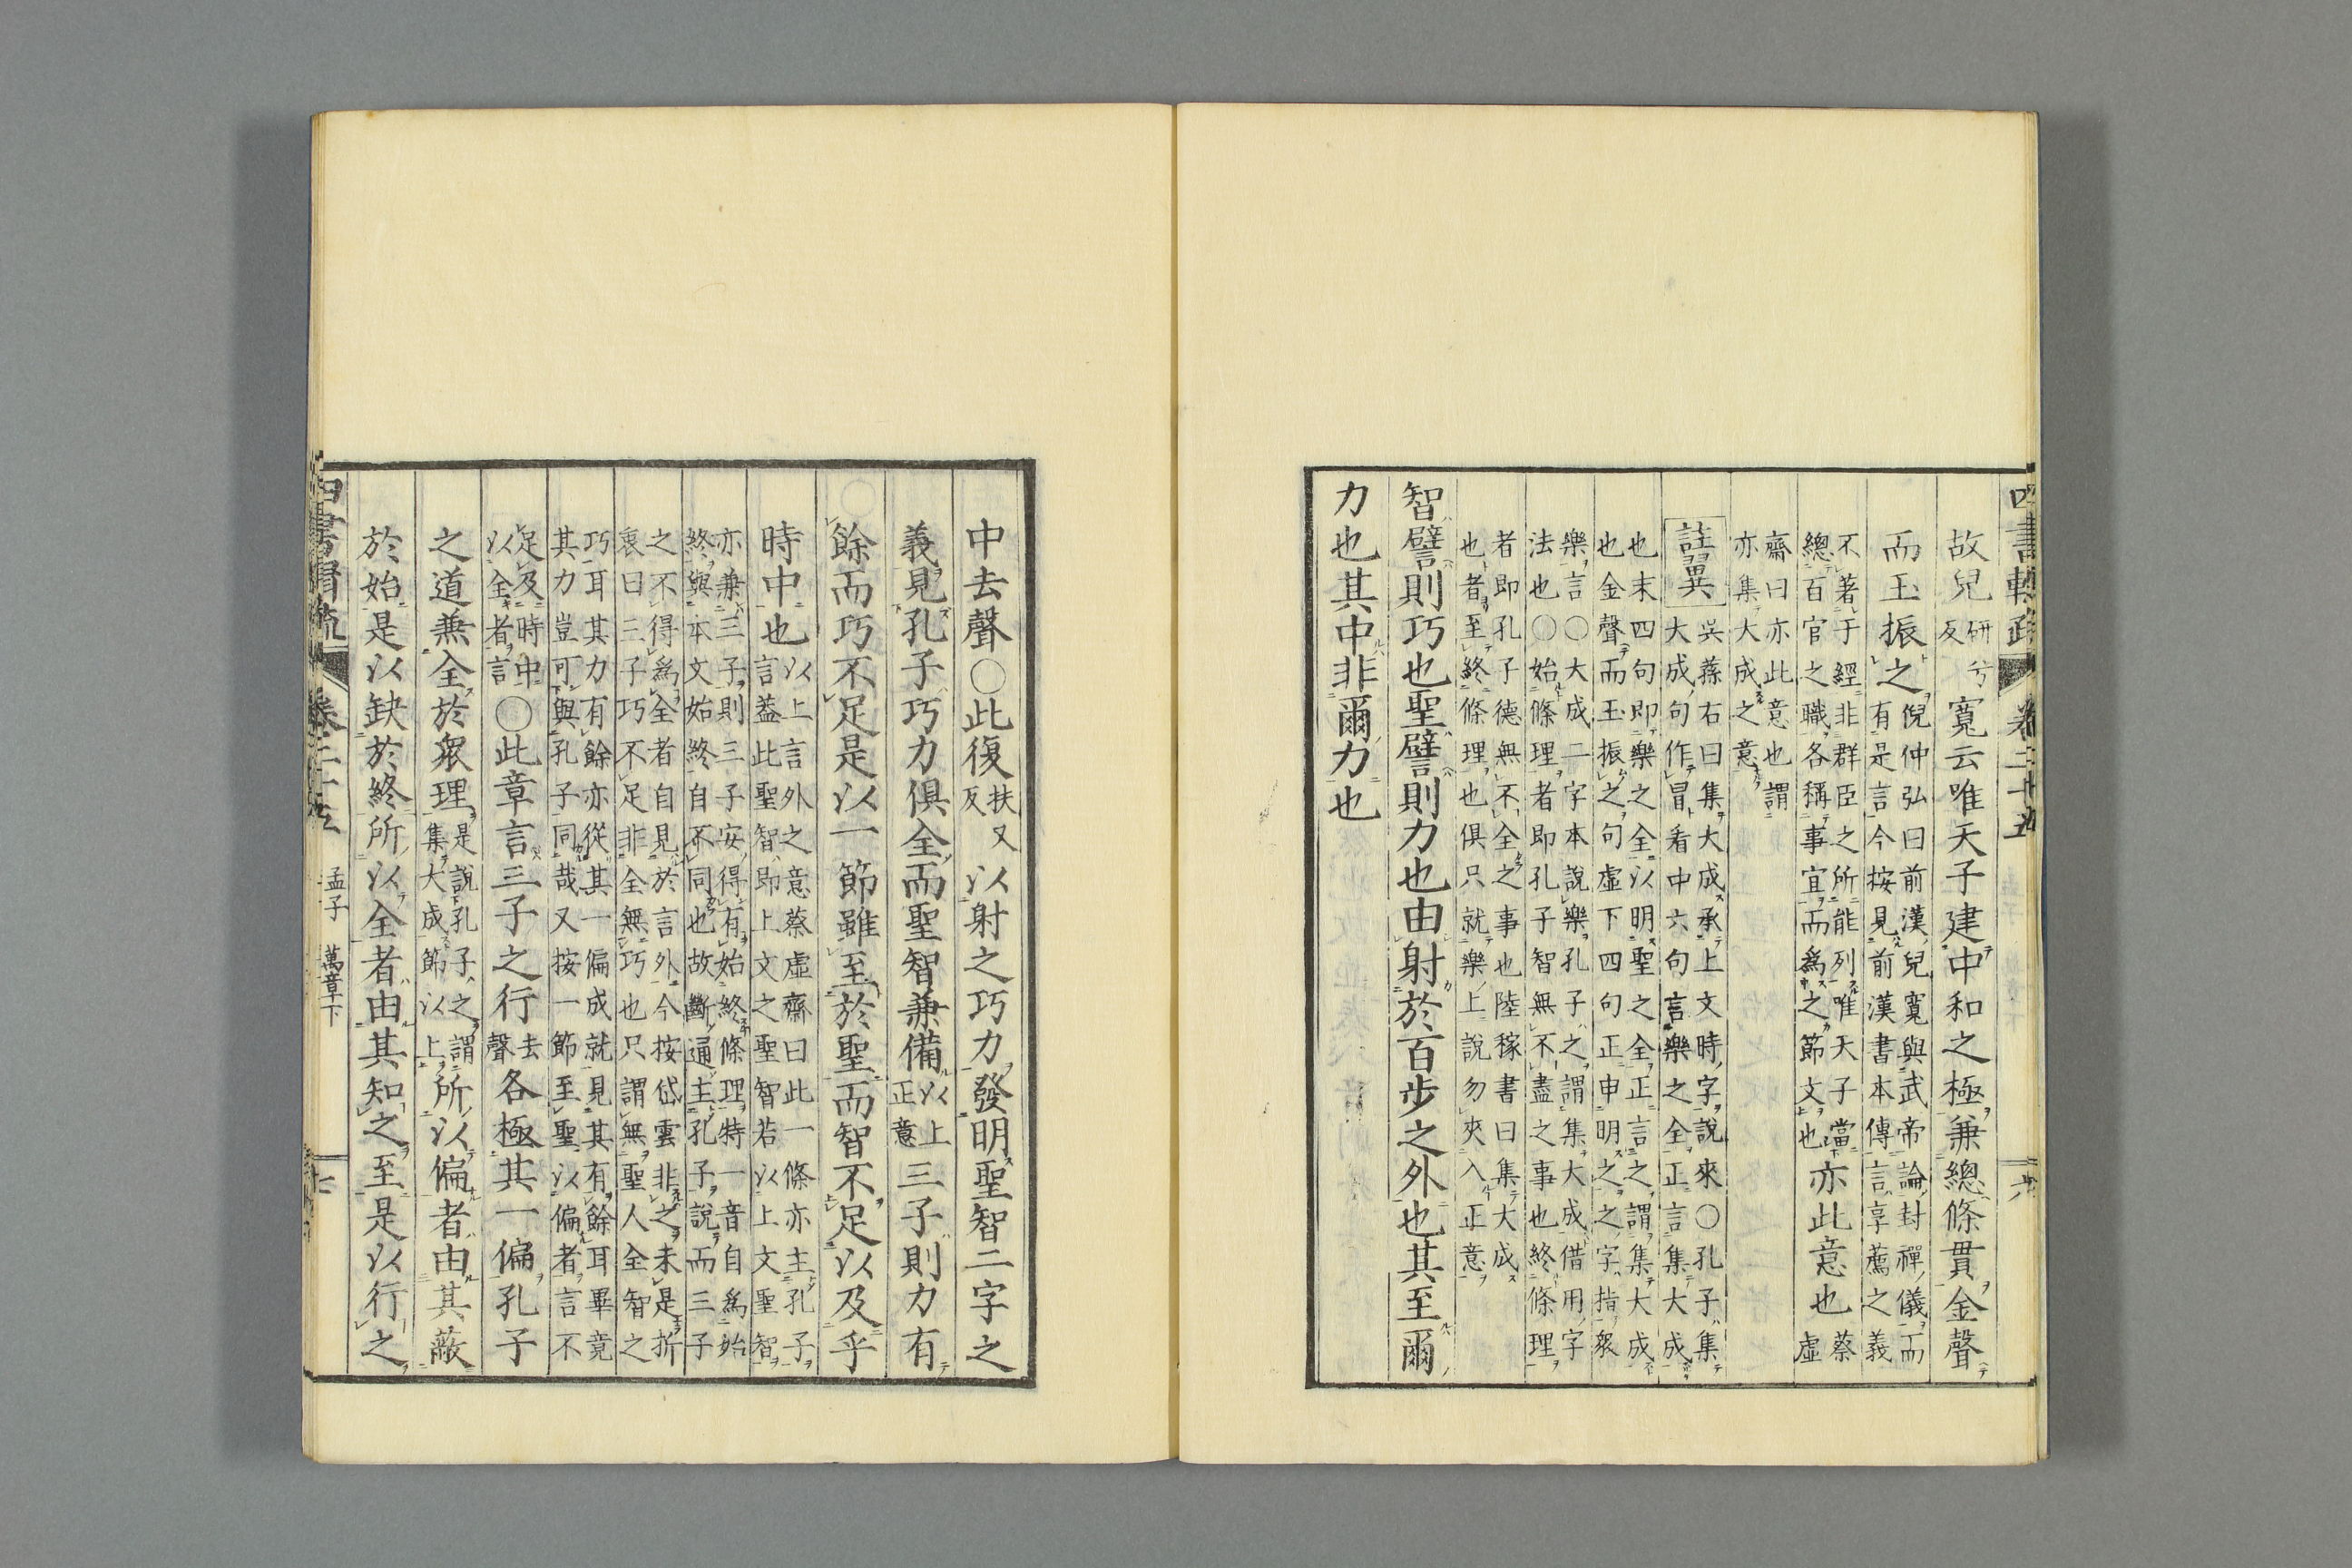 故兒研兮反寬云唯天子建中和之極兼總條貫金聲
而玉振之倪仲弘曰前漢兒寬與武帝論封禪儀而
有是言今按見前漢書本傳言享薦之義
不著于經非群臣之所能列唯天子當
總百官之職各稱事宜而爲之節文也亦此意也蔡虛
齋曰亦此意也謂
亦集大成之意
註翼吳蓀右曰集大成承上文時字說來〇孔子集
大成句作冒看中六句言樂之全正言集大成
也末四句即樂之全以明聖之全正言之謂集大成
也金聲而玉振之句虛下四句正申明之之字指衆
樂言〇大成二字本說樂孔子之謂集大成借用字
法也〇始條理者即孔子智無不盡之事也終條理
者即孔子德無不全之事也陸稼書曰集大成
也者至終條理也俱只就樂上說勿夾入正意
智譬則巧也聖譬則力也由射於百步之外也其至爾
力也其中非爾力也
四書輯疏 卷二十五 十六
中去聲〇此復扶又反以射之巧力發明聖智二字之
義見孔子巧力俱全而聖智兼備以上正意三子則力有
餘而巧不足是以一節雖至於聖而智不足以及乎
時中也以上言外之意蔡虛齋曰此一條亦主孔子
言葢此聖智即上文之聖智若以上文聖智
亦兼三子則三子安得有始終條理特一音自爲始
終與本文始終自不同也故斷通主孔子說而三子
之不得爲全者自見於言外今按岱雲非之未是折
衷曰三子巧不足非全無巧也只謂無聖人全智之
巧耳其力有餘亦從其一偏成就見其有餘耳畢竟
其力豈可與孔子同哉又按一節至聖以偏者言不
足及時中
以全者言〇此章言三子之行去聲各極其一偏孔子
之道兼全於衆理是說孔子之謂
集大成節以上所以偏者由其蔽
於始是以缺於終所以全者由其知之至是以行之
四書輯疏 卷二十五 孟子 萬章下 十七